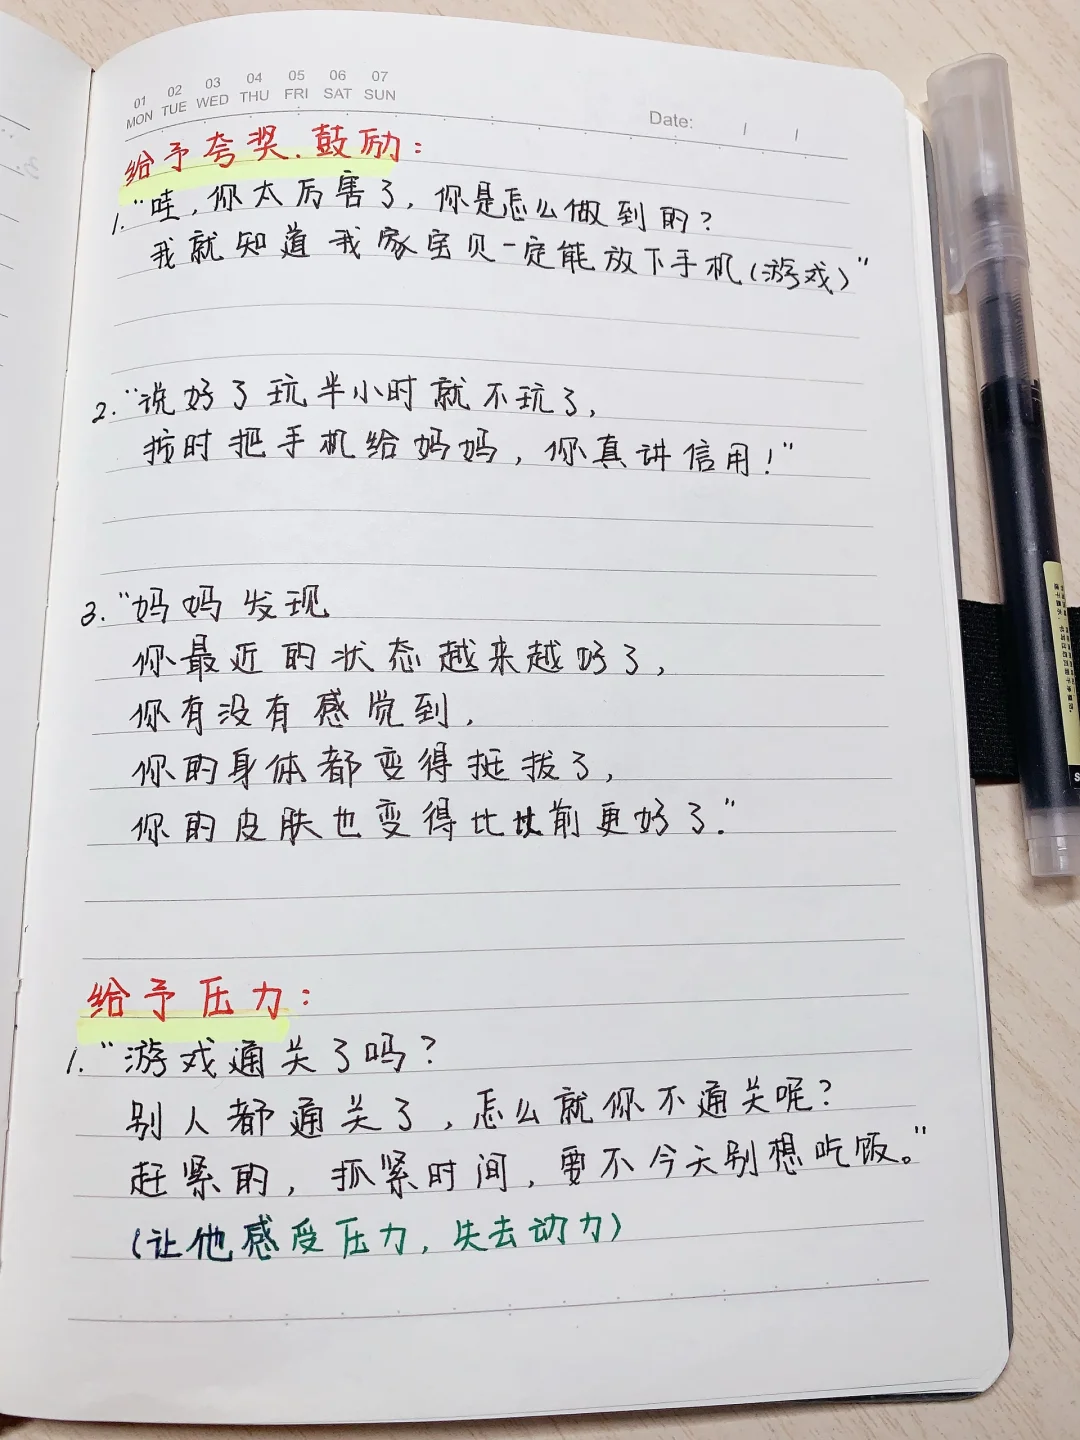 01 02 03 04 05 06 07
MON TUE WED THU FRI SAT SUN
Date: / /
给予夸奖、鼓励:
1. “哇,你太厉害了,你是怎么做到的?
我就知道我家宝贝一定能放下手机(游戏)”
2. “说好了玩半小时就不玩了,
按时把手机给妈妈,你真讲信用!”
3. “妈妈发现
你最近的状态越来越好了,
你有没有感觉到,
你的身体都变得挺拔了,
你的皮肤也变得比以前更好了.”
给予压力:
1. “游戏通关了吗?
别人都通关了,怎么就你不通关呢?
赶紧的,抓紧时间,要不今天别想吃饭。”
(让他感受压力,失去动力)